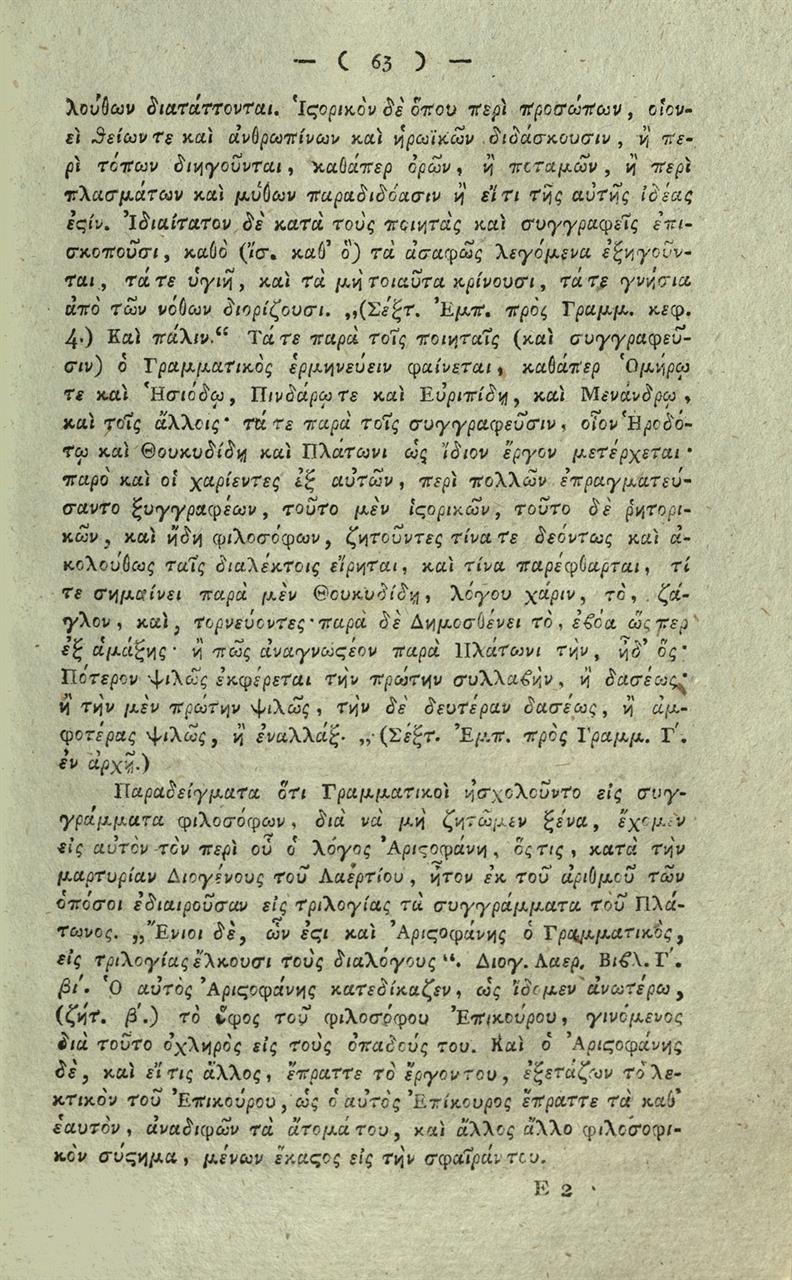 — ( 63 ) —
λούθων διατάττονται. Ἱϛορικὸν δὲ ὅπου περὶ προσώπων, οἱον-
εὶ θείων τε καὶ ἀνθρωπίνων καὶ ἡρωϊκῶν διδάσκουσιν, ἢ πε-
ρὶ τόπων διηγοῦνται, καθάπερ ὀρῶν, ἢ ποταμῶν, ἢ περὶ
πλασμάτων καὶ μύθων παραδιδόασιν ἢ εἴ τι τῆς αὐτῆς ἰδέας
ἐϛίν. Ἰδιαίτατον δὲ κατὰ τοὺς ποιητὰς καὶ συγγραφεῖς ἐπι-
σκοποῦσι, καθὸ (ἴσ. καθ' ὃ) τὰ ἀσαφῶς λεγόμενα ἐξηγοῦν-
ται, τά τε ὑγιῆ, καὶ τὰ μὴ τοιαῦτα κρίνουσι, τά τε γνήσια
ἀπὸ τῶν νόθων διορίζουσι. „(Σέξτ. Ἐμπ. πρὸς Γραμμ. κεφ.
4.) Καὶ πάλιν.“ Τά τε παρὰ τοῖς ποιηταῖς (καὶ συγγραφεῦ-
σιν) ὁ Γραμματικὸς ἑρμηνεύειν φαίνεται, καθάπερ Ὁμήρῳ
τε καὶ Ἡσιόδῳ, Πινδάρῳ τε καὶ Εὐριπίδῃ, καὶ Μενάνδρῳ,
καὶ τοῖς ἄλλοις· τά τε παρὰ τοῖς συγγραφεῦσιν, οἷον Ἡροδό-
τῳ καὶ Θουκυδίδῃ καὶ Πλάτωνι ὡς ἴδιον ἔργον μετέρχεται·
παρὸ καὶ οἱ χαρίεντες ἐξ αὐτῶν, περὶ πολλῶν ἐπραγματεύ-
σαντο ξυγγραφέων, τοῦτο μὲν ἱϛορικῶν, τοῦτο δὲ ῥητορι-
κῶν, καὶ ἤδη φιλοσόφων, ζητοῦντες τίνα τε δεόντως καὶ ἀ-
κολούθως ταῖς διαλέκτοις εἴρηται, καὶ τίνα παρέφθαρται, τί
τε σημαίνει παρὰ μὲν Θουκυδίδῃ, λόγου χάριν, τὸ, ζά-
γλον, καὶ, τορνεύοντες· παρὰ δὲ Δημοσθένει τὸ, ἐϐόα ὥς περ
ἐξ ἁμάξης· ἢ πῶς ἀναγνωϛέον παρὰ Πλάτωνι τὴν, ἠδ' ὅς·
Πότερον ψιλῶς ἐκφέρεται τὴν πρώτην συλλαϐὴν, ἢ δασέως,
ἢ τὴν μὲν πρώτην ψιλῶς, τὴν δὲ δευτέραν δασέως, ἢ ἀμ-
φοτέρας ψιλῶς, ἢ ἐναλλάξ. „ (Σέξτ. Ἐμπ. πρὸς Γραμμ. Γ'.
ἐν ἀρχῇ.)
Παραδείγματα ὅτι Γραμματικοὶ ἠσχολοῦντο εἰς συγ-
γράμματα φιλοσόφων, διὰ νὰ μὴ ζητῶμεν ξένα, ἔχομεν
εἰς αὐτὸν τὸν περὶ οὗ ὁ λόγος Ἀριϛοφάνη, ὅς τις, κατὰ τὴν
μαρτυρίαν Διογένους τοῦ Λαερτίου, ἦτον ἐκ τοῦ ἀριθμοῦ τῶν
ὁπόσοι ἐδιαιροῦσαν εἰς τριλογίας τὰ συγγράμματα τοῦ Πλά-
τωνος. „Ἔνιοι δὲ, ὧν ἐϛι καὶ Ἀριϛοφάνης ὁ Γραμματικὸς,
εἰς τριλογίας ἕλκουσι τοὺς διαλόγους“. Διογ. Λαερ. Βιϐλ. Γ'.
ϐι'. Ὁ αὐτὸς Ἀριϛοφάνης κατεδίκαζεν, ὡς ἴδομεν ἀνωτέρω,
(ζήτ. ϐ'.) τὸ ὕφος τοῦ φιλοσόφου Ἐπικούρου, γινόμενος
διὰ τοῦτο ὀχληρὸς εἰς τοὺς ὀπαδούς του. Καὶ ὁ Ἀριϛοφάνης
δὲ, καὶ εἴ τις ἄλλος, ἔπραττε τὸ ἔργον του, ἐξετάζων τὸ λε-
κτικὸν τοῦ Ἐπικούρου, ὡς ὁ αὐτὸς Ἐπίκουρος ἔπραττε τὰ καθ'
ἑαυτὸν, ἀναδιφῶν τὰ ἄτομά του, καὶ ἄλλος ἄλλο φιλοσοφι-
κὸν σύϛημα, μένων ἕκαϛος εἰς τὴν σφαῖράν του.
Ε 2